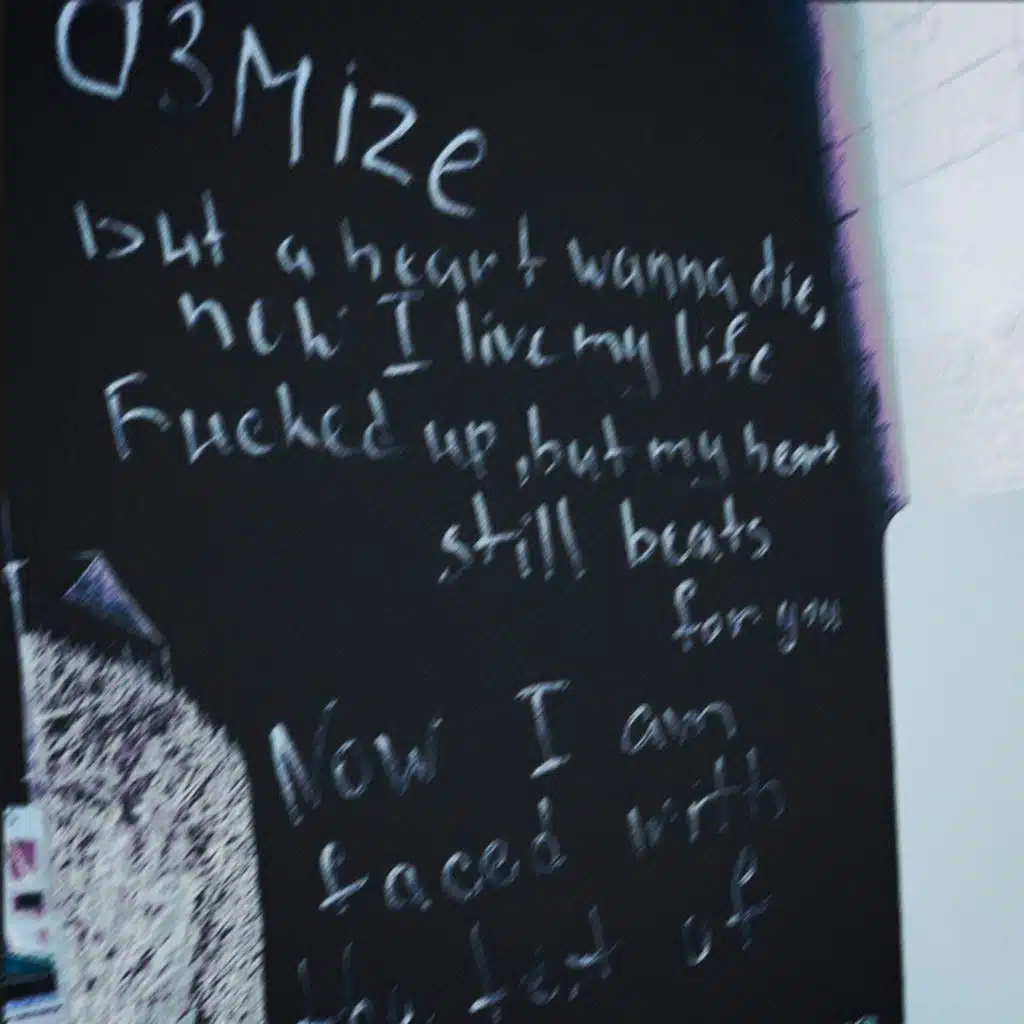 03Mize
but a heart wanna die,
now I live my life
Fucked up, but my heart
still beats
for you
Now I am
faced with
the test of